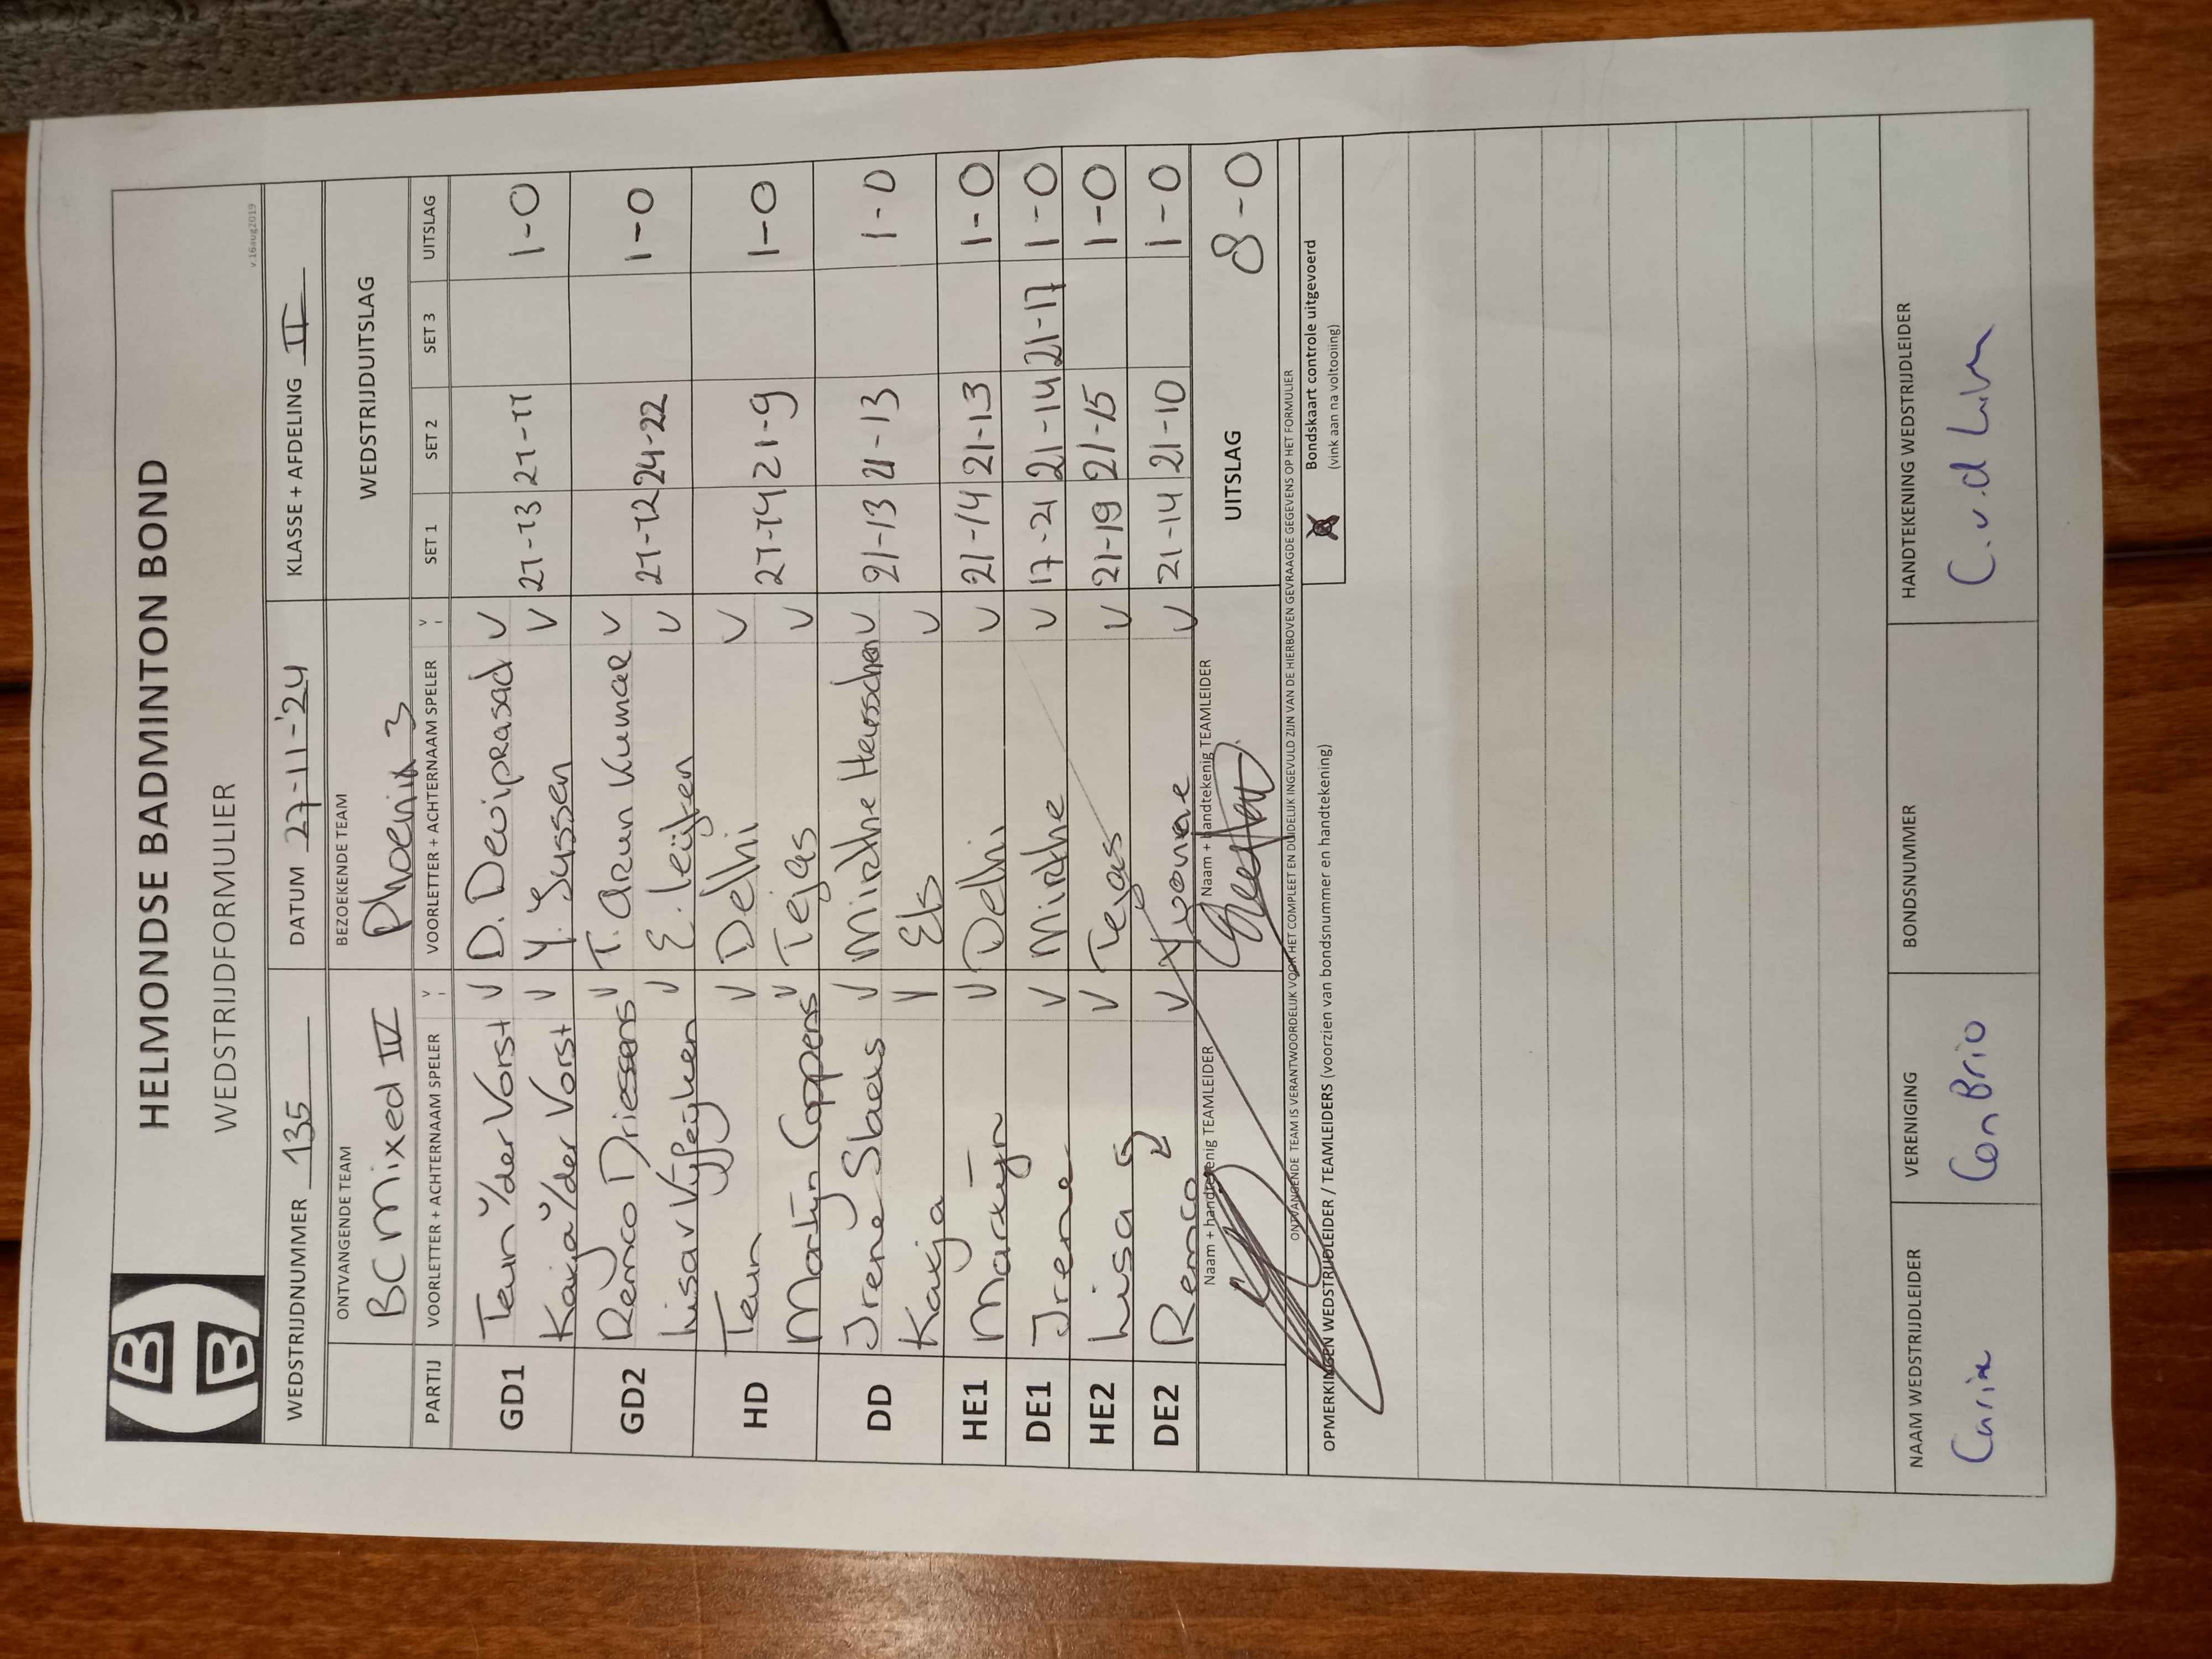 HELMONDSE BADMINTON BOND
WEDSTRIJDFORMULIER
v.16aug2019
WEDSTRIJDNUMMER 135 DATUM 27-11-'24 KLASSE + AFDELING II
ONTVANGENDE TEAM BEZOEKENDE TEAM WEDSTRIJDUITSLAG
BC mixed IV Phoenix 3
PARTIJ VOORLETTER + ACHTERNAAM SPELER V VOORLETTER + ACHTERNAAM SPELER V SET 1 SET 2 SET 3 UITSLAG
GD1 Teun v/der Vorst V D. Deviprasad V
Katja v/der Vorst V Y. Jussen V 21-13 21-11 1-0
GD2 Remco Driessens V T. Arun Kumar V
Lisa v Vijfeijken V E. Leijten V 21-12 24-22 1-0
HD Teun V Delhi V
Martijn Coppens V Tejas V 21-14 21-9 1-0
DD Irene Slaets V Mirthe Heusschen V 21-13 21-13 1-0
Katja V Els V
HE1 Martijn V Delhi V 21-14 21-13 1-0
DE1 Irene V Mirthe V 17-21 21-14 21-17 1-0
HE2 Lisa V Tejas V 21-19 21-15 1-0
DE2 Remco V Yvonne V 21-14 21-10 1-0
Naam + handtekenig TEAMLEIDER Naam + handtekenig TEAMLEIDER UITSLAG 8-0
ONTVANGENDE TEAM IS VERANTWOORDELIJK VOOR HET COMPLEET EN DUIDELIJK INGEVULD ZIJN VAN DE HIERBOVEN GEVRAAGDE GEGEVENS OP HET FORMULIER
OPMERKINGEN WEDSTRIJDLEIDER / TEAMLEIDERS (voorzien van bondsnummer en handtekening) X Bondskaart controle uitgevoerd
(vink aan na voltooiing)
NAAM WEDSTRIJDLEIDER VERENIGING BONDSNUMMER HANDTEKENING WEDSTRIJDLEIDER
Con Brio